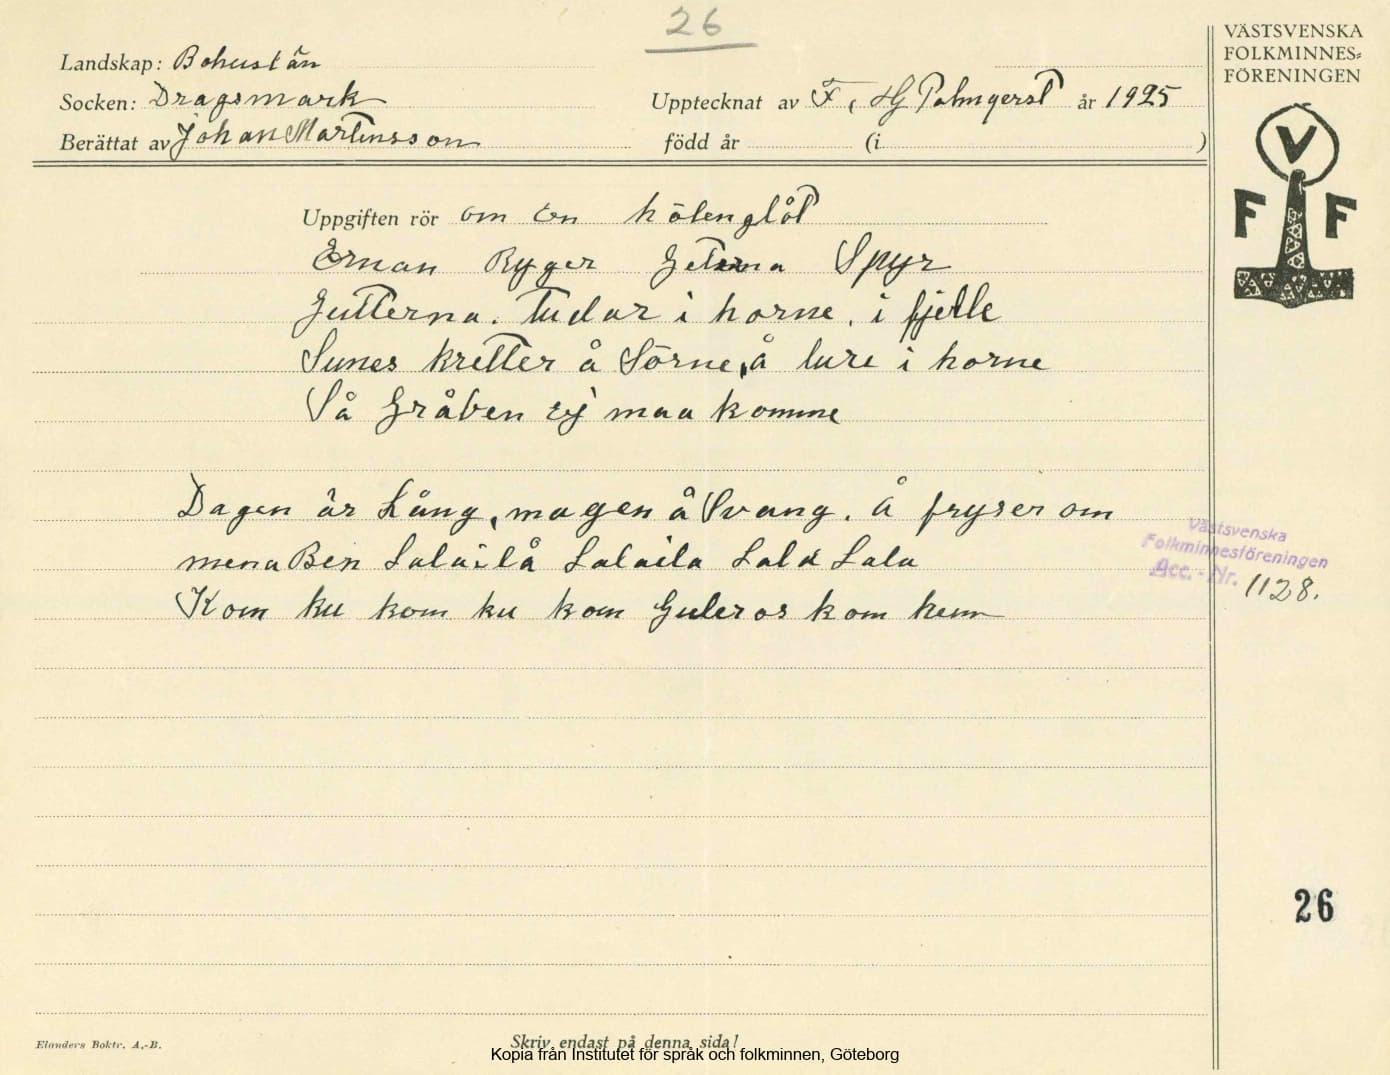 26
VÄSTSVENSKA
FOLKMINNES-
FÖRENINGEN
Landskap: Bohuslän
Socken: Dragsmark
Upptecknat av F, HG Palmgerst år 1925
Berättat av Johan Martinsson
född år (i )
V
F F
Uppgiften rör om en hölenglåt
Ernan Ryger Spyr
Gutterna. tudar i horne. i fjelle
Sunes kretter å Sörne, å lure i horne
Så Gråben ej maa komme
Dagen är Lång, magen å Svang. Å fryser om
mena Ben Lalailå Lalaila Lala Lala
Kom ku kom ku kom Guleros kom hem
Västsvenska
Folkminnesföreningen
Acc.-Nr. 1128.
26
Elanders Boktr. A.-B.
Skriv endast på denna sida!
Kopia från Institutet för språk och folkminnen, Göteborg